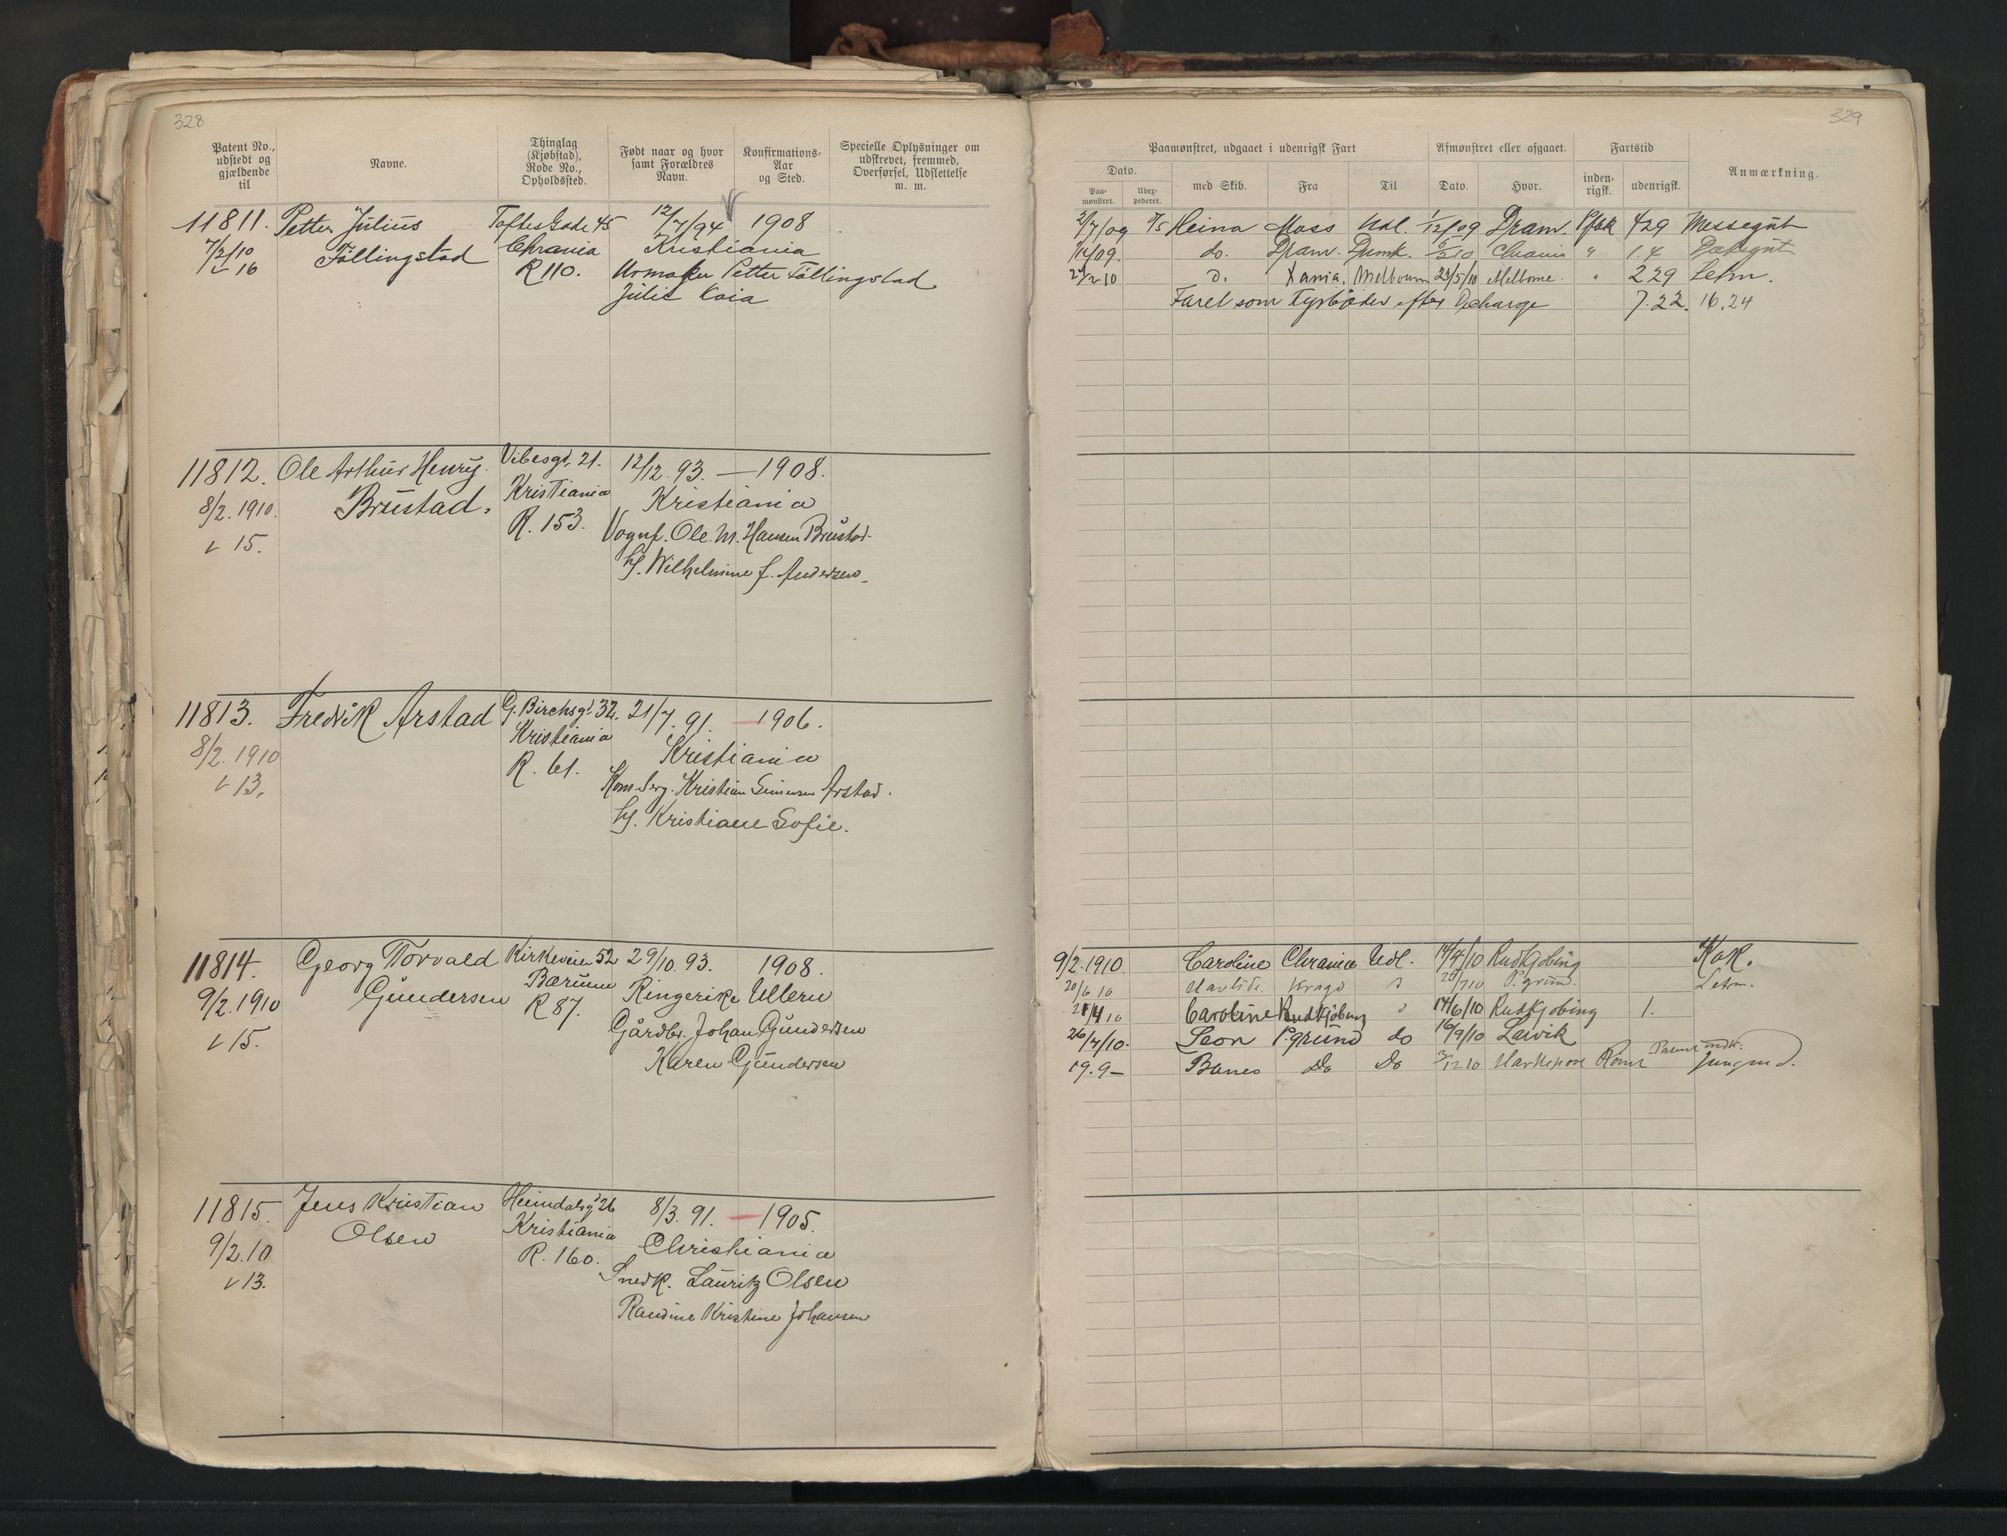 328
Patent No., udstedt og gjældende til
Navne.
Thinglag (Kjøbstad), Rode No., Opholdssted.
Født naar og hvor samt Forældres Navn.
Konfirmations-Aar og Sted.
Specielle Oplysninger om udskrevet, fremmed, Overførsel, Udslettelse m. m.
11811. Petter Julius Toftes Gade 45 12/7/94 1908
7/2/10 Föllingstad Chrania Kristiania
16 R 110. Urmaker Petter Föllingstad
Julie Kaia
11812. Ole Arthur Henry Vibesgt. 21. 12/12. 93. — 1908.
8/2. 1910. Brustad. Kristiania Kristiania
15. R. 153. Vognf. Ole M. Hansen Brustad
H. Wilhelmine f. Andersen
11813. Fredrik Arstad G. Birchsgt. 32. 21/7. 91. — 1906.
8/2. 1910 Kristiania Kristiania
13. R. 61. Kristian Simensen Arstad.
H. Kristiane Sofie.
11814. Georg Torvald Kirkeveien 52 29/10. 93. 1908.
9/2. 1910 Gundersen Bærum Ringerike Ullern
15. R 87. Gårdbr. Johan Gundersen
Karen Gundersen
11815. Jens Kristian Heimdalsgt 26 8/3. 91. — 1905.
9/2. 10 Olsen Kristiania Christiania
13. R. 160. Snedk. Lauritz Olsen
Randine Kristine Johansen
329
Paamønstret, udgaaet i udenrigsk Fart
Afmønstret eller afgaaet.
Fartstid
Anmærkning.
Dato.
Paa-mønstret.
Udex-pederet.
med Skib.
Fra
Til
Dato.
Hvor.
inden-rigsk.
udenrigsk.
2/7/09 Heina Moss Udl. 1/12/09 Dram. 4 29 Messegut
1/12/09. do. Dram. Dunk. Chrania " 1.4 Dæksgut
d. Xania. Melbourn 23/5/10 Melborne. " 2 29 Letm.
Faret som Fyrbøder efter Dcharge 7. 22. 16.24
9/2. 1910. Caroline Chrania Udl. 14/4/10 Rudkjobing Kok.
20/6 10 Kragø P.grund. Letm.
21/4 10 Caroline Rudkjöbing 14/6/10 Rudkjobing 1.
26/7/10. Leon P.grund do 16/9/10 Larvik
19. 9 — Do Do 12 10 Jungmd.